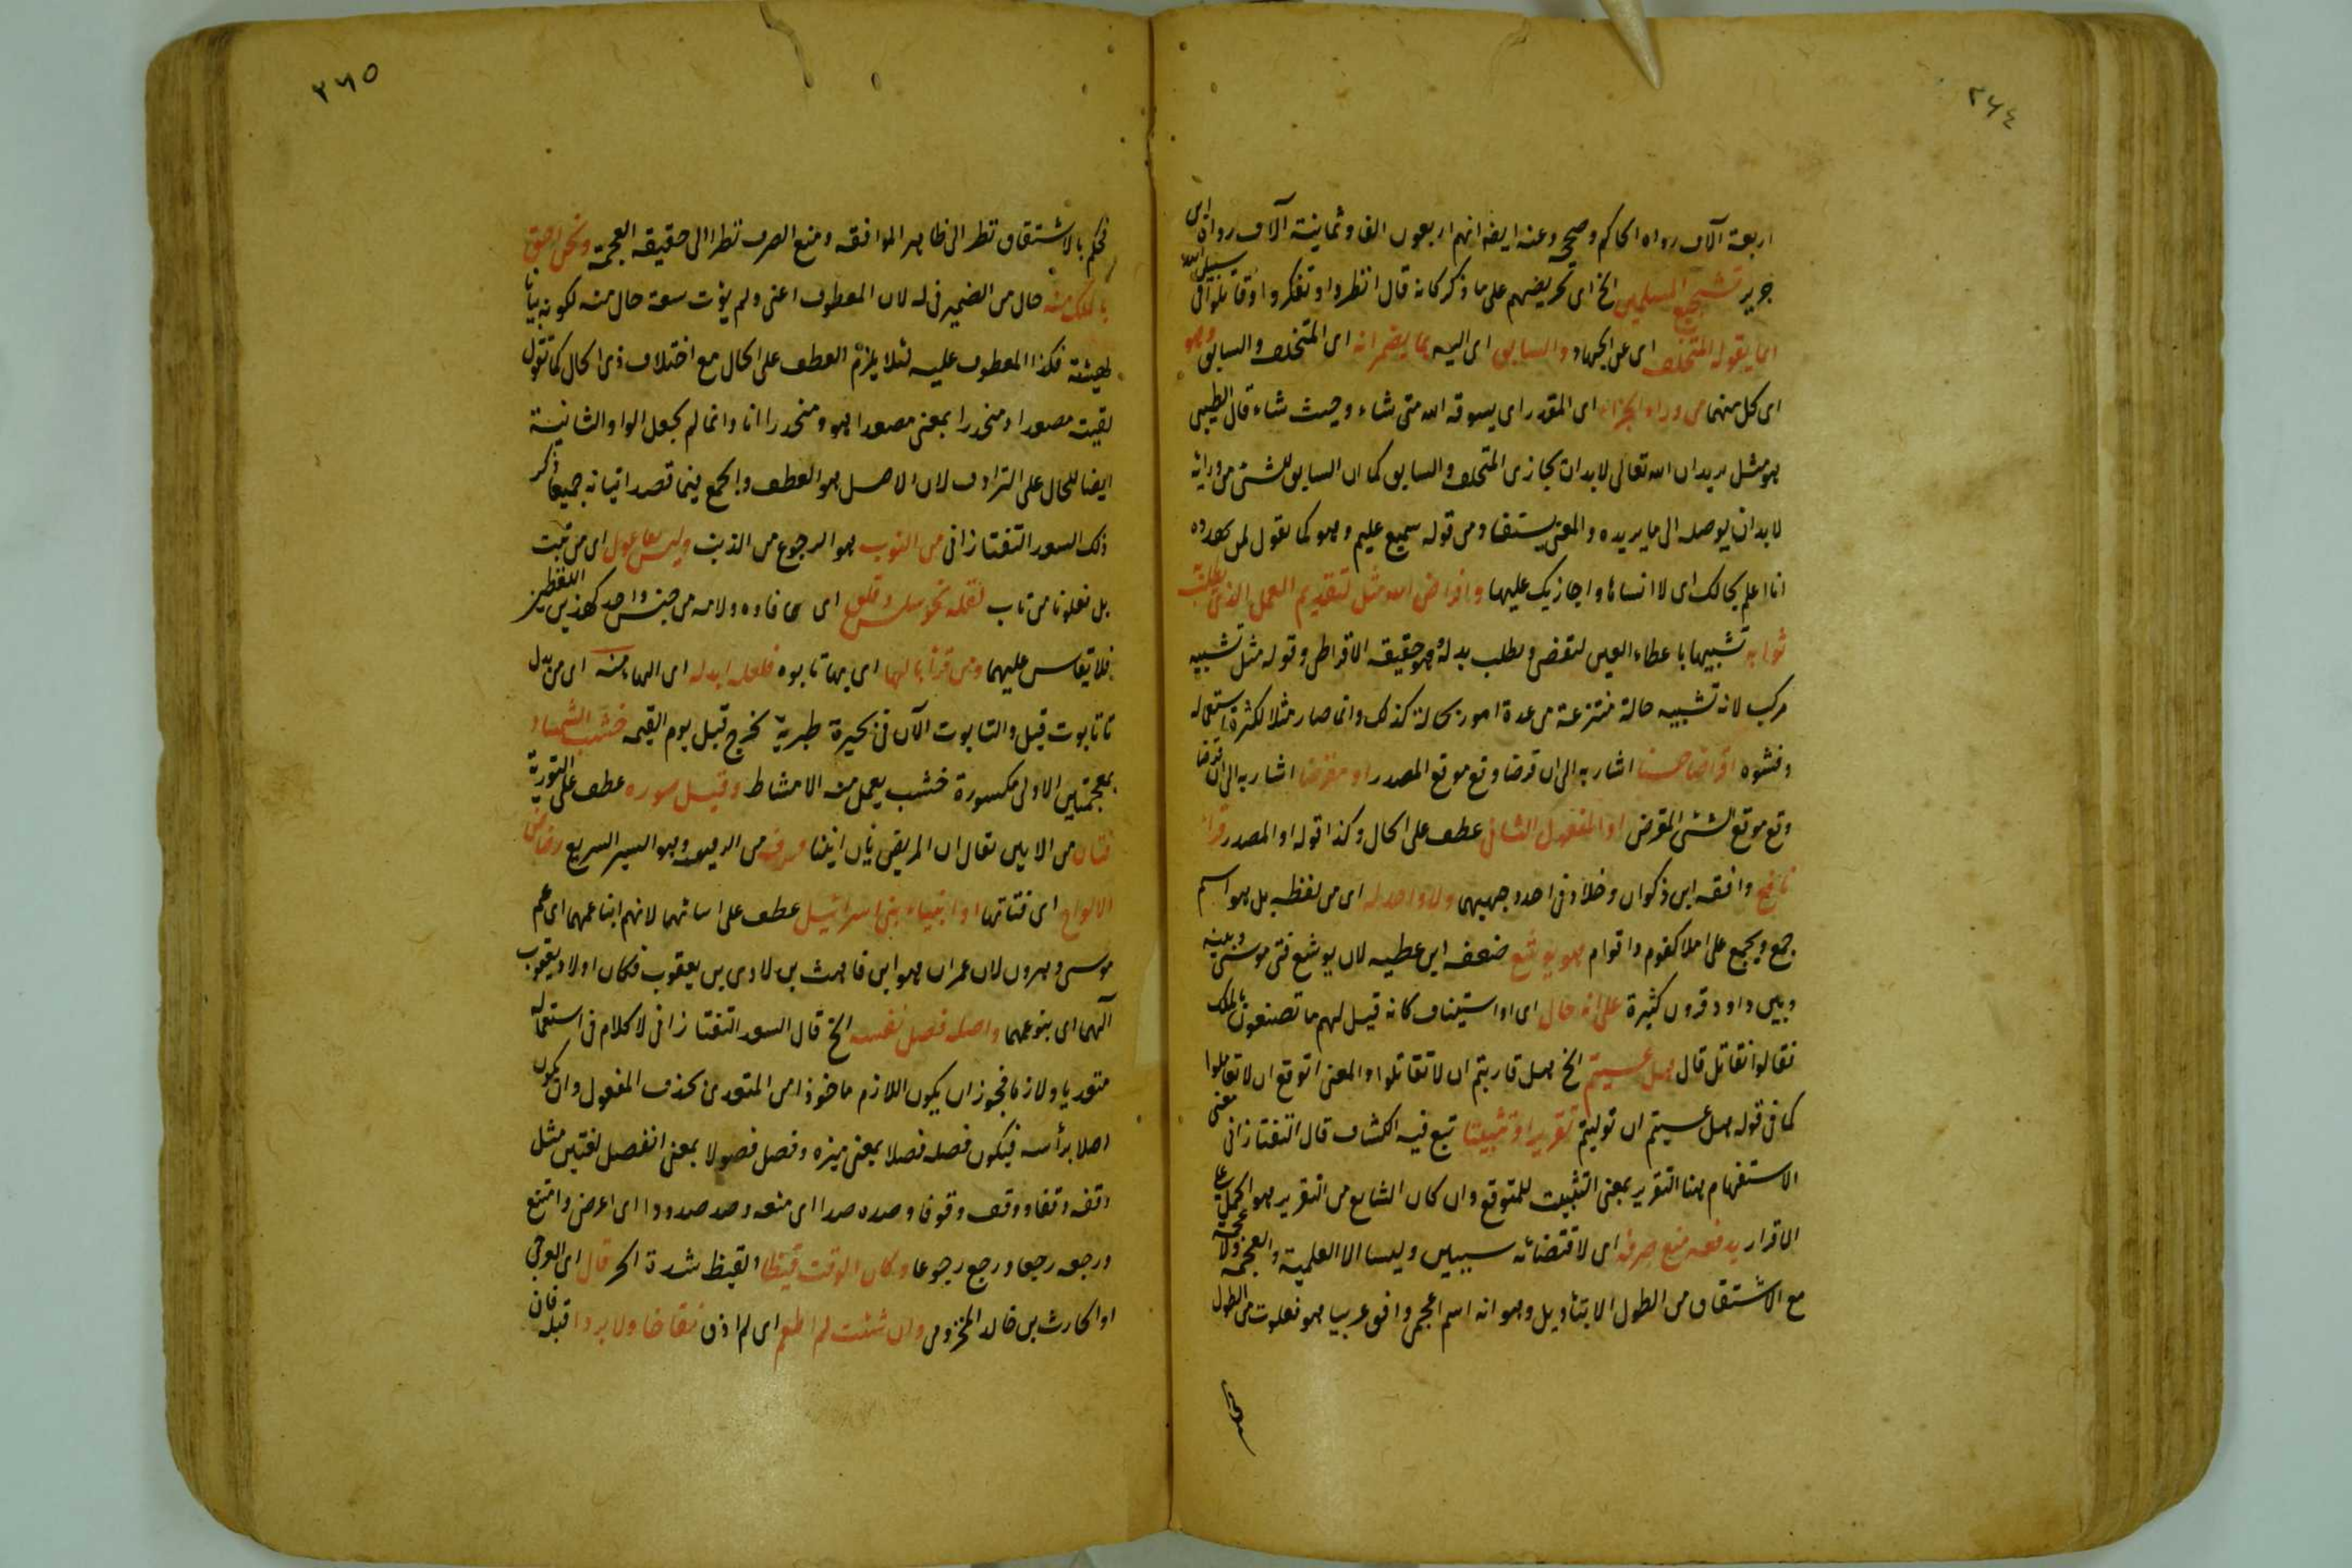 ٢٦٤
اربعة آلاف رواه الحاكم وصححه وعنه ايضا انهم اربعون الفا وثمانية آلاف رواه ابن
جرير تشجيع المسلمين الخ اى تحريضهم على ما ذكر كانه قال انظروا وتفكروا وقاتلوا فى سبيل الله
لما يقوله المتخلف اى عن الجهاد والسابق اى اليه بما يضمرانه اى المتخلف والسابق وهو
اى كل منهما من وراء الجزاء اى المقدر اى يسوقه الله متى شاء وحيث شاء قال الطيبى
هو مثل يريد ان الله تعالى لابد ان يجازى المتخلف والسابق كما ان السايق للشئ من ورائه
لابد ان يوصله الى ما يريده والمعنى يستفاد من قوله سميع عليم وهو كما تقول لمن
انا اعلم بحالك اى لا انساها واجازيك عليها واقراض الله مثل لتقديم العمل الذى يطلب
ثوابه تشبيها باعطاء العين لتقضى ويطلب بدله وهو حقيقة الاقراض وقوله مثل تشبيه
مركب لانه تشبيه حالة منتزعة من عدة امور بحالة كذلك وانما صار مثلا لكثرة استعماله
وفشوه اقراضا حسنا اشار به الى ان قرضا وقع موقع المصدر او مقرضا اشار به الى ان قرضا
وقع موقع الشئ المقرض او المفعول الثانى عطف على الحال وكذا قوله او المصدر قرأ
نافع وافقه ابن ذكوان وخلاد فى احد وجهيهما ولا واحد له اى من لفظه بل هو اسم
جمع ويجمع على املا كقوم واقوام هو يوشع ضعفه ابن عطية لان يوشع فتى موسى وبينه
وبين داود قرون كثيرة على انه حال اى او استيناف كانه قيل لهم ما تصنعون بالملك
فقالوا نقاتل قال هل عسيتم الخ هل قاربتم ان لا تقاتلوا والمعنى اتوقع ان لا تقاتلوا
كما فى قوله هل عسيتم ان توليتم تقريرا وتثبيتا تبع فيه الكشاف قال التفتازانى معنى
الاستفهام هنا التقرير بمعنى التثبيت للمتوقع وان كان الشايع من التقرير هو الحمل على
الاقرار يدفعه منع صرفه اى لاقتضائه سببين وليسا الا العلمية والعجمة ولا عجمة
مع الاشتقاق من الطول الا بتأويل وهو انه اسم اعجمى وافق عربيا هو فعلوت من الطول
٢٦٥
فحكم بالاشتقاق نظرا الى ظاهر الموافقة ومنع الصرف نظرا الى حقيقة العجمة ونحن احق
بالملك منه حال من الضمير فى له لان المعطوف اعنى ولم يؤت سعة حال منه لكونه بيانا
لهيئته فكذا المعطوف عليه لئلا يلزم العطف على الحال مع اختلاف ذى الحال كما تقول
لقيته مصعدا ومنحدرا بمعنى مصعدا هو ومنحدرا انا وانما لم يجعل الواو الثانية
ايضا للحال على الترادف لان الاصل هو العطف والجمع فيما قصد اتيانه جميعا ذكر
ذلك السعد التفتازانى من التوب هو الرجوع من الذنب وليس بفاعول اى من تبت
بل فعلوتا من تاب لقلة نحو سلس وقلق اى ما فاؤه ولامه من جنس واحد كهذين اللفظين
فلا يقاس عليهما ومن قرأ بالهاء اى بهاء تابوه فلعله ابدله اى الهاء منه اى من بدل
تا تابوت قيل والتابوت الآن فى بحيرة طبرية يخرج قبل يوم القيمة خشب الشمشاد
بمعجمتين الاولى مكسورة خشب يعمل منه الامشاط وقيل صورة عطف على التورية
فتئن من الانين يقال ان المريض يئن انينا من الزفيف وهو السير السريع رضاض
الالواح اى فتاتها او انبياء بنى اسرائيل عطف على ابنائهما لانهم ابناء عمهما اى عم
موسى وهرون لان عمران هو ابن قاهث بن لاوى بن يعقوب فكان اولاد يعقوب
آلهما اى بنو عمهما واصله فصل نفسه الخ قال السعد التفتازانى لا كلام فى استعماله
متعديا ولازما فيجوز ان يكون اللازم ماخوذا من المتعدى بحذف المفعول وان يكون
اصلا برأسه فيكون فصله فصلا بمعنى ميزه وفصل فصولا بمعنى انفصل لغتين مثل
وقفه وقفا ووقف وقوفا وصده صدا اى منعه وصد صدودا اى اعرض وامتنع
ورجعه رجعا ورجع رجوعا وكان الوقت قيظا القيظ شدة الحر قال اى العرجى
او الحارث بن خالد المخزومى وان شئت لم اطعم اى لم اذق نقاخا ولا بردا قبله فان